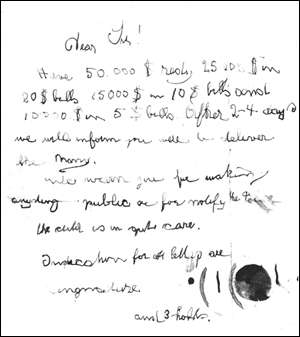 Dear Sir!
Have 50.000 $ redy 25 000 $ in
20 $ bills 15000 $ in 10 $ bills and
10000 $ in 5 $ bills After 2-4 days
we will inform you were to deliver
the mony.
We warn you for making
anyding public or for notify the
the child is in gut care.
Indication for all letters are
singnature
and 3 holds.